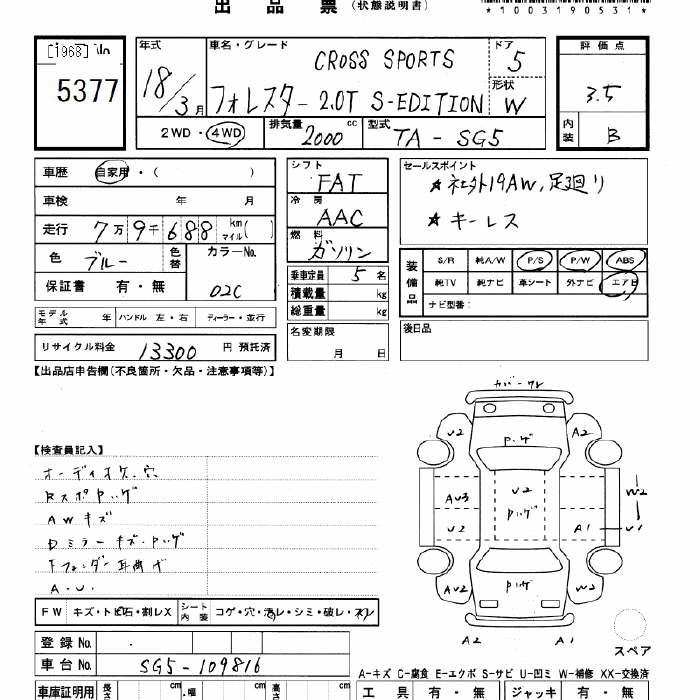 出品票 (状態説明書)
*1003190531*
[1968]
5377
年式 18/3月
車名・グレード CROSS SPORTS
フォレスター 2.0T S-EDITION
ドア 5
形状 W
2WD・4WD
排気量 2000 cc
型式 TA-SG5
評価点 3.5
内装 B
車歴 自家用・( )
車検 年 月
走行 7万9千688 km マイル( )
色 ブルー 色替
カラーNo. 02C
保証書 有・無
モデル年式 年 ハンドル 左・右 ディーラー・並行
リサイクル料金 13300 円 預託済
シフト FAT
冷房 AAC
燃料 ガソリン
乗車定員 5 名
積載量 kg
総重量 kg
名変期限 月 日
セールスポイント
★社外19AW,足回り
★キーレス
装備品
S/R 純A/W P/S P/W ABS
純TV 純ナビ 革シート 外ナビ エアB
ナビ型番:
後日品
【出品店申告欄(不良箇所・欠品・注意事項等)】
【検査員記入】
オーディオケ.穴
Rスポハゲ
AWキズ
Dミラーキズ・ハゲ
Fフェンダー耳曲げ
A.U.
FW キズ・トビ石・割レX シート内装 コゲ・穴・汚レ・シミ・破レ・スレ
登録No.
車台No. SG5-109816
車庫証明用 長さ cm ・幅 cm 高さ cm
カバーワレ
U2 ハゲ A2
AU3 U2 W2
U2 ハゲ A1 U1
AU2 ハゲ W2
A2 A1
スペア
A-キズ C-腐食 E-エクボ S-サビ U-凹ミ W-補修 XX-交換済
工具 有・無 ジャッキ 有・無